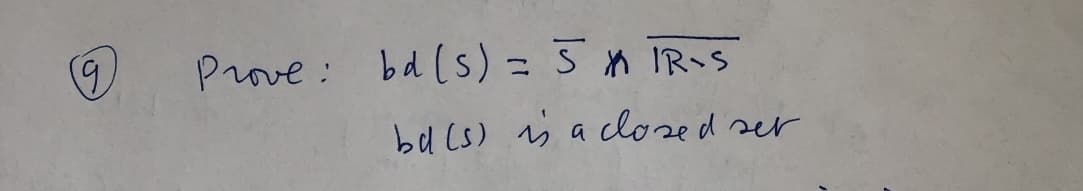 ⑨ Prove: bd(S) = S̅ ∩ \overline{ℝ∖S}
bd(S) is a closed set